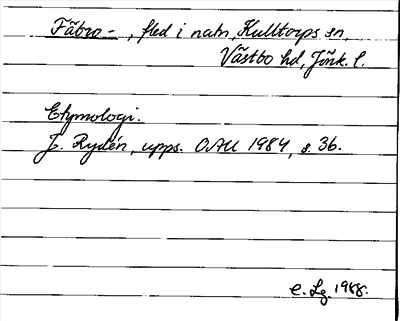 Fäbro- , fled i natn, Kulltorps sn,
Västbo hd, Jönk. l.
Etymologi.
J. Rydén, upps. OAU 1984, s. 36.
e. Lg 1988.